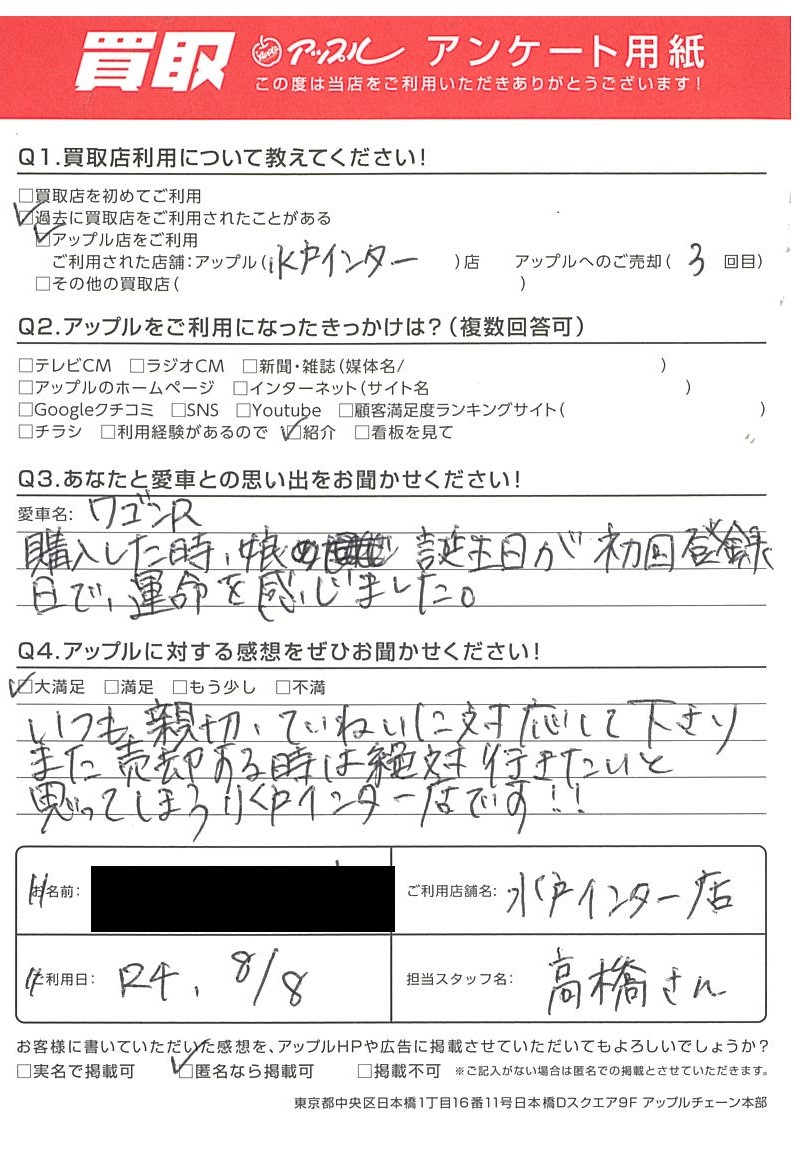 買取 アップル アンケート用紙
この度は当店をご利用いただきありがとうございます！
Q1.買取店利用について教えてください！
□買取店を初めてご利用
☑過去に買取店をご利用されたことがある
☑アップル店をご利用
ご利用された店舗：アップル（水戸インター）店 アップルへのご売却（3回目）
□その他の買取店（ ）
Q2.アップルをご利用になったきっかけは？（複数回答可）
□テレビCM □ラジオCM □新聞・雑誌（媒体名/ ）
□アップルのホームページ □インターネット（サイト名 ）
□Googleクチコミ □SNS □Youtube □顧客満足度ランキングサイト（ ）
□チラシ □利用経験があるので ☑紹介 □看板を見て
Q3.あなたと愛車との思い出をお聞かせください！
愛車名：ワゴンR
購入した時、娘の誕生日が初回登録
日で、運命を感じました。
Q4.アップルに対する感想をぜひお聞かせください！
☑大満足 □満足 □もう少し □不満
いつも親切、ていねいに対応して下さり
また売却ある時は絶対行きたいと
思ってしまう水戸インター店です!!
お名前： ご利用店舗名：水戸インター店
ご利用日：R4. 8/8 担当スタッフ名：高橋さん
お客様に書いていただいた感想を、アップルHPや広告に掲載させていただいてもよろしいでしょうか？
□実名で掲載可 ☑匿名なら掲載可 □掲載不可 ※ご記入がない場合は匿名での掲載とさせていただきます。
東京都中央区日本橋1丁目16番11号日本橋Dスクエア9F アップルチェーン本部